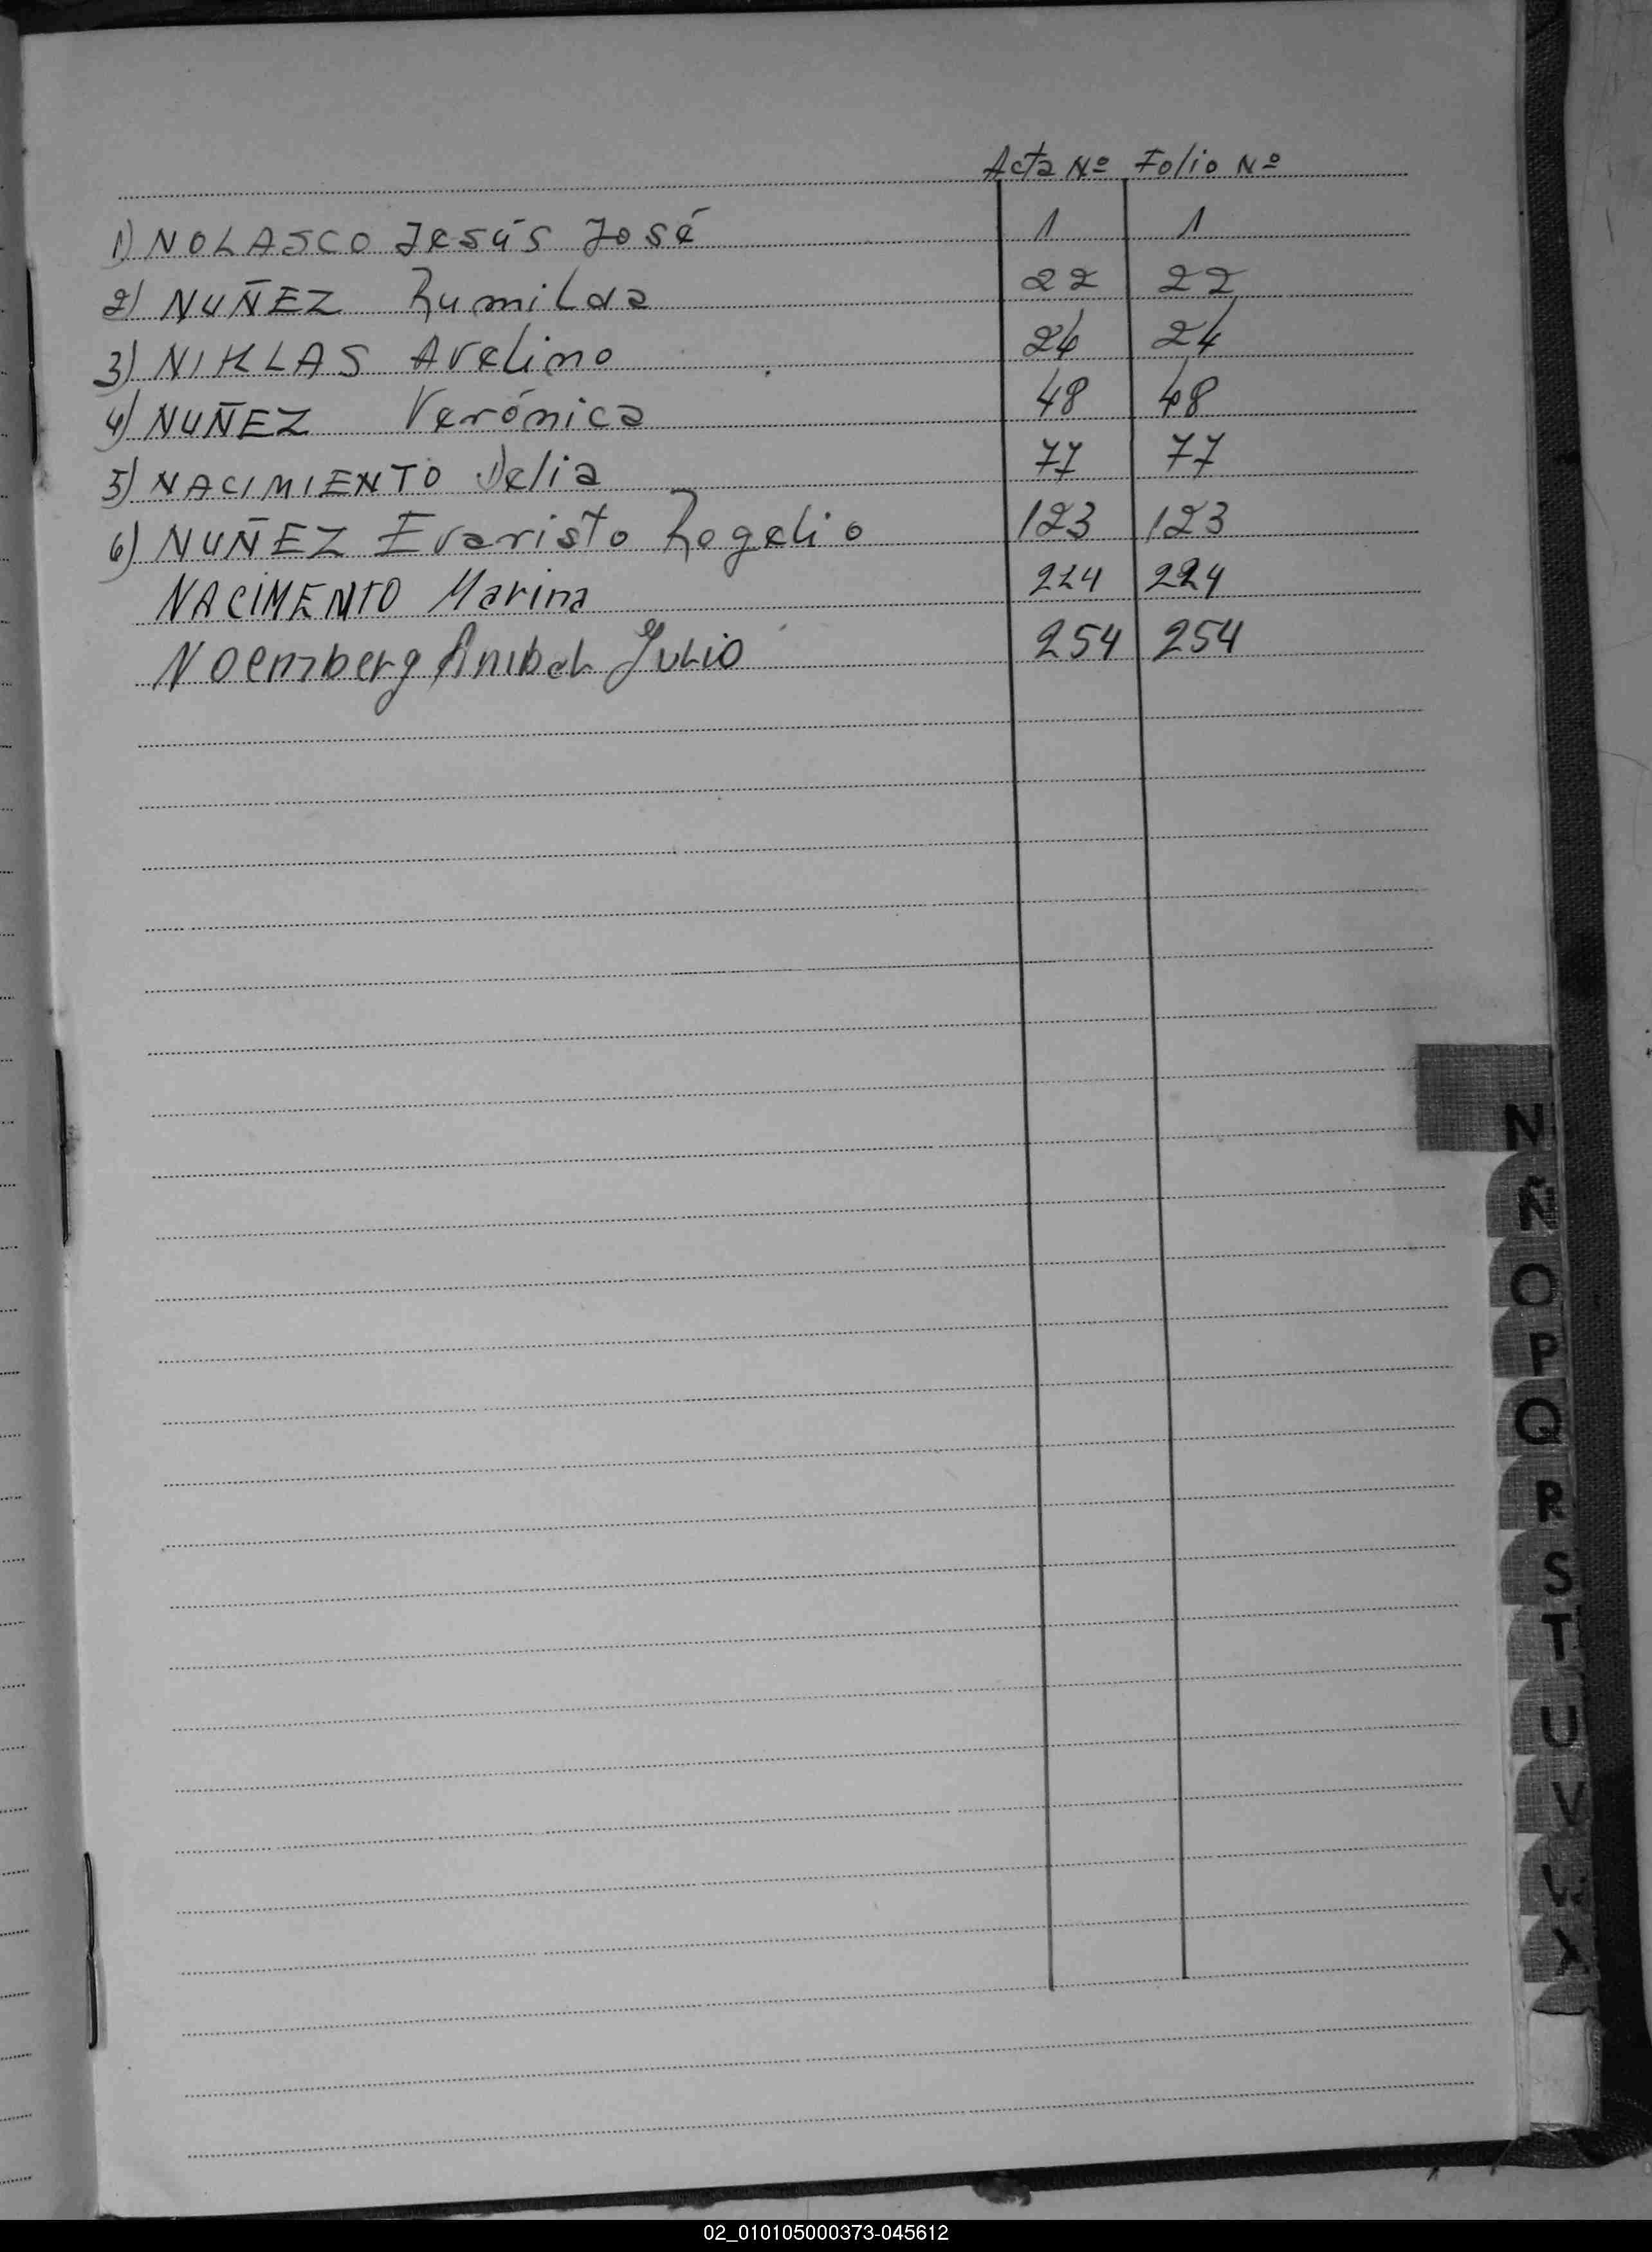 Acta Nº Folio Nº
1) NOLASCO Jesús José 1 1
2) NUÑEZ Rumilda 22 22
3) NIKLAS Avelino 24 24
4) NUÑEZ Verónica 48 48
5) NACIMIENTO Delia 77 77
6) NUÑEZ Evaristo Rogelio 123 123
NACIMENTO Marina 224 224
Noernberg Anibal Julio 254 254
N
Ñ
O
P
Q
R
S
T
U
V
W
X
02_010105000373-045612